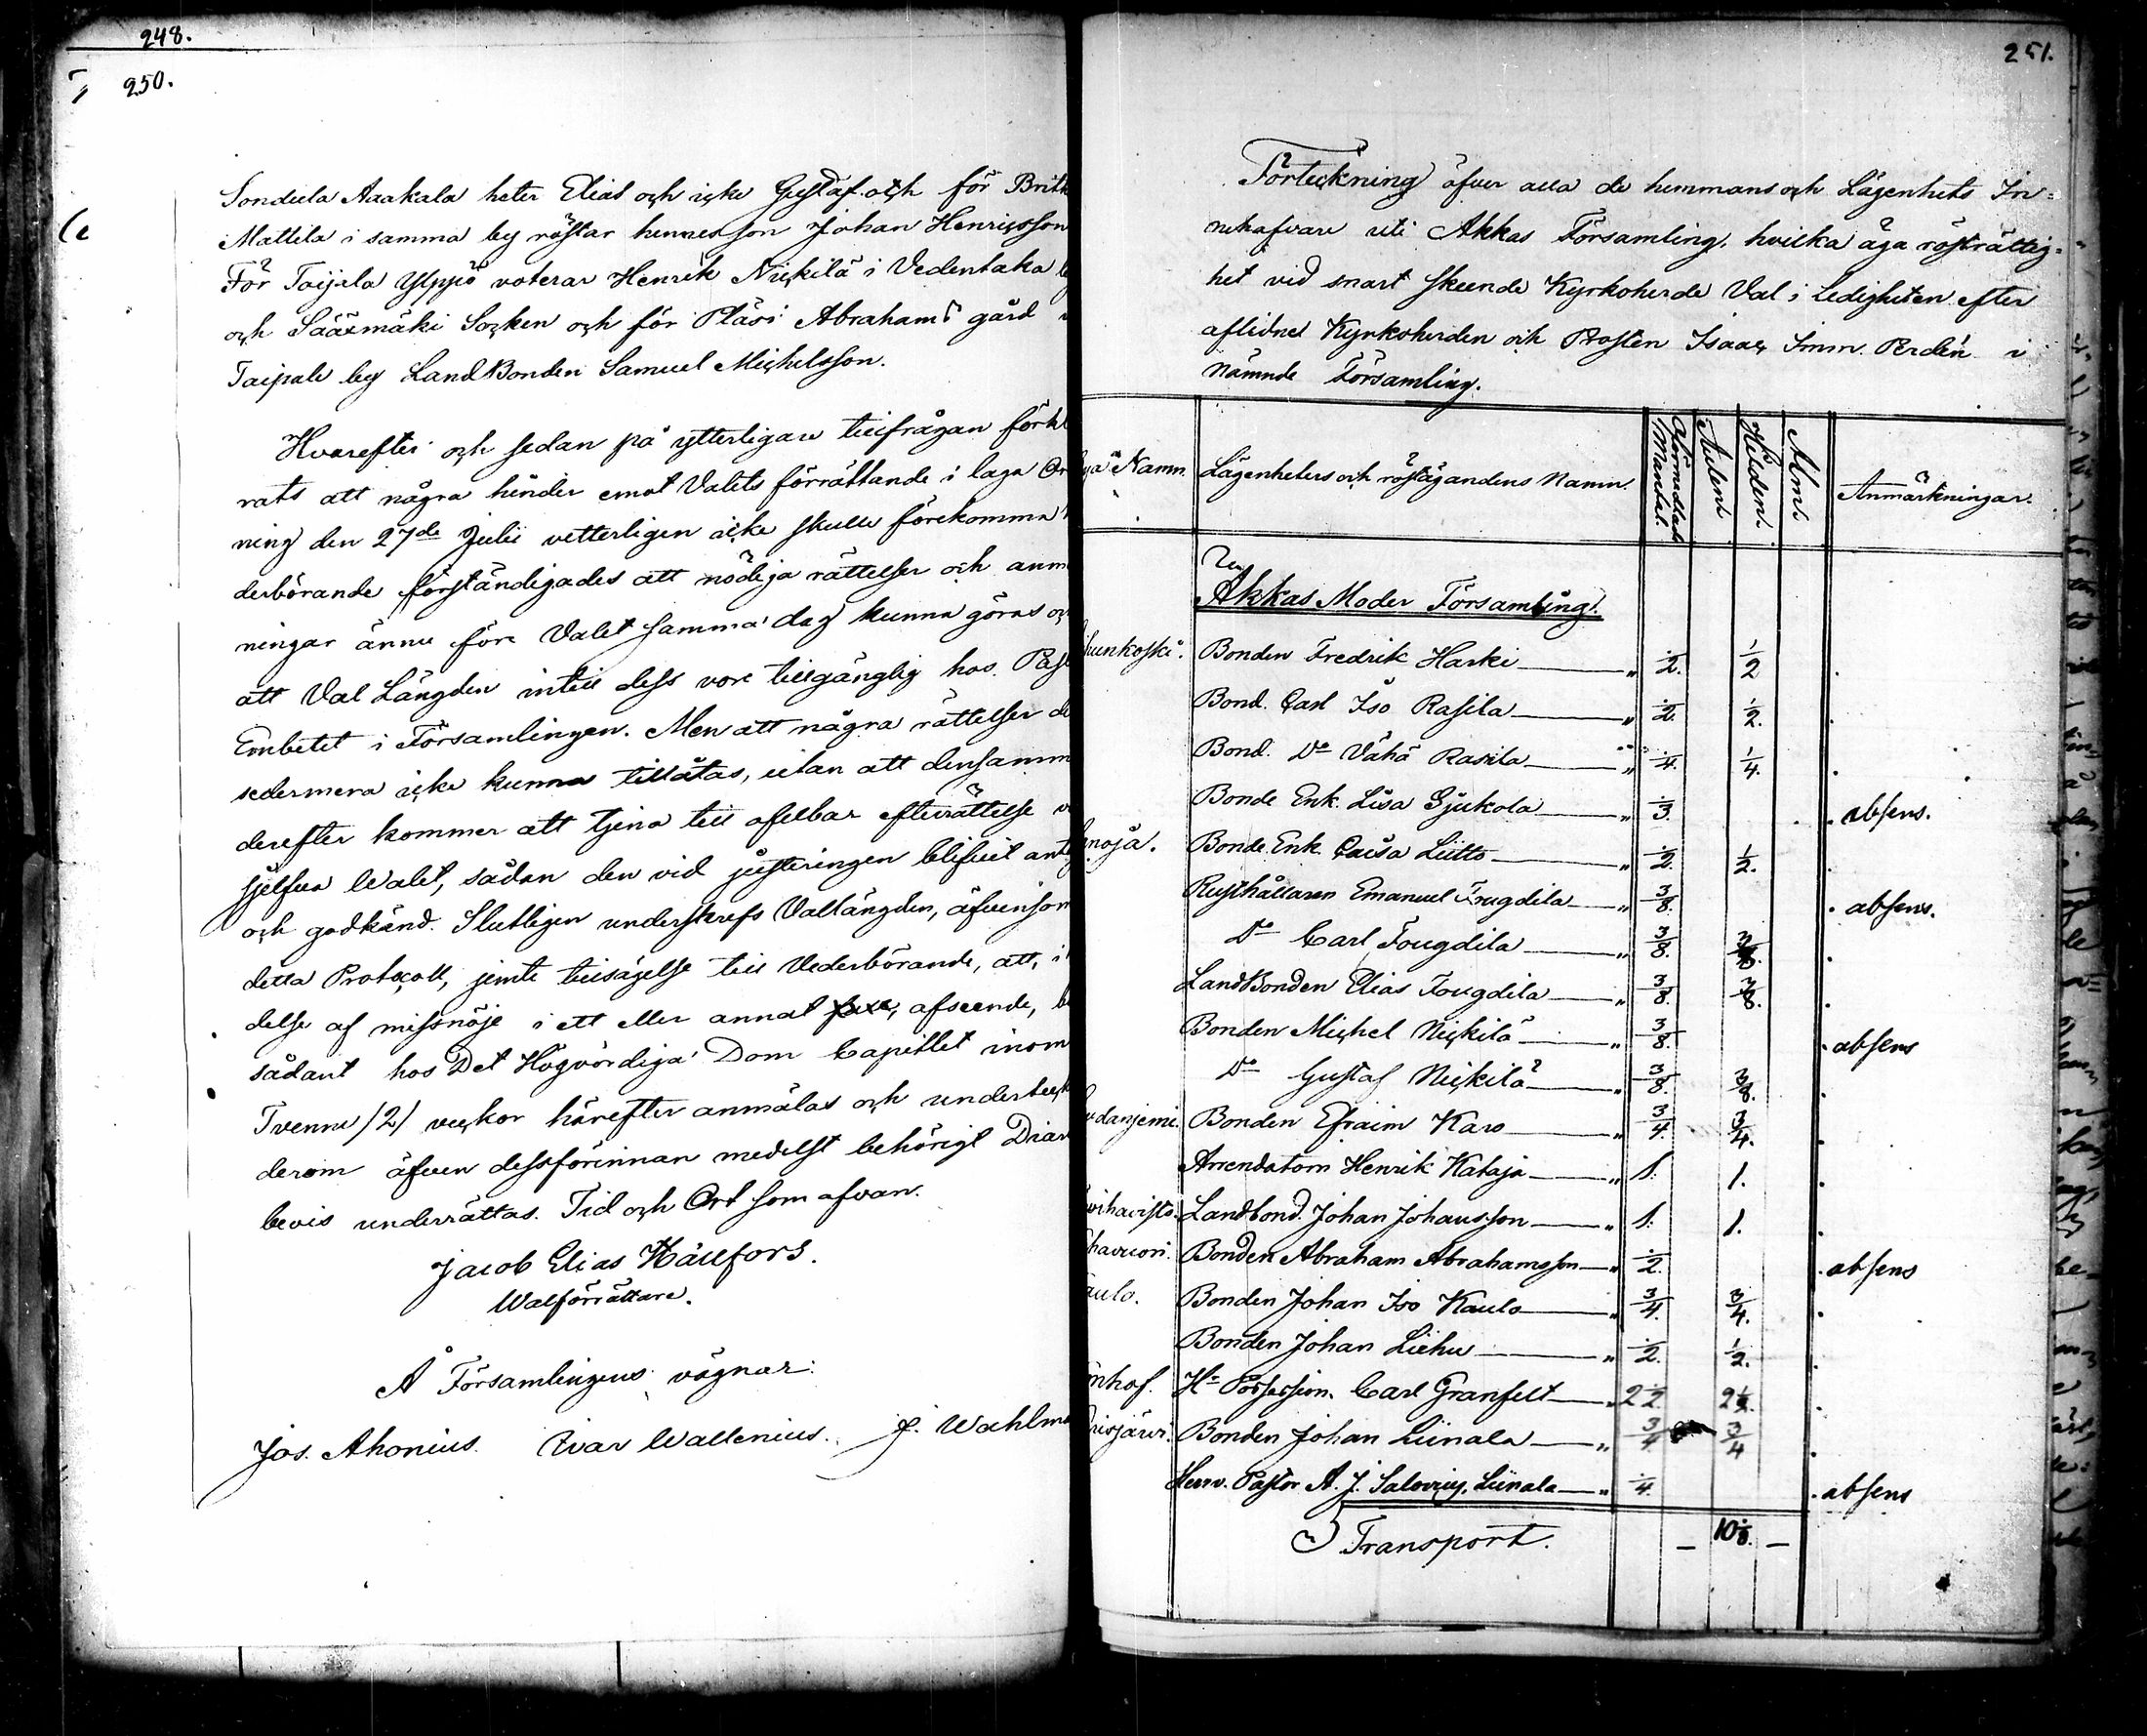 248.
250.
Sondula Aaakala heter Elias och icke Gustaf och för Britt
Mattila i samma by röstar hennes son Johan Henricsson
För Toijala Ylppö voterar Henrik Nickilä i Vedentaka
och Sääxmäki Socken och för Pläsi Abrahams gård
Taipale by LandBonden Samuel Michelsson.
Hvarefter och sedan på ytterligare tillfrågan förkl
rats att några hinder emot Valets förrättande i laga Or
ning den 27de Julii vetterligen icke skulle förekomma
derbörande förständigades att nödiga rättelser och anm
ningar ännu före Valet samma dag kunna göras oc
att Val Längden intill dess vore tillgänglig hos Past
Embetet i Församlingen. Men att några rättelser de
sedermera icke kunna tillåtas, utan att densamm
derefter kommer att tjena till ofelbar efterrättelse v
sjelfva Valet, sådan den vid justeringen blifvit ant
och godkänd. Slutligen underskrefs Vallängden, äfvensom
detta Protocoll, jemte tillsägelse till Vederbörande, att, i
delse af missnöje i ett eller annat afseende, b
sådant hos Det Högvördiga Dom Capitlet inom
Tvenne /2/ veckor härefter anmälas och undertec
derom äfven dessförinnan medelst behörigt Diar
bevis underrättas. Tid och Ort som ofvan.
Jacob Elias Hällfors.
Walförrättare.
Å Församlingens vägnar:
Jos. Ahonius. Ivar Wallenius. J. Wahlm
251.
Förteckning öfver alla de hemmans och Lägenhets In=
nehafvare uti Akkas Församling, hvilka äga rösträttig=
het vid snart skeende Kyrkoherde Val i Ledigheten efter
aflidne Kyrkoherden och Prosten Isaac Imm. Perdén i
nämnde Församling.
Namn. Lägenheters och röstägandens Namn. Oförmedlad Mantal. Aulen. Hildén. Alm. Anmärkningar.
Akkas Moder Församling.
hunkoski. Bonden Fredrik Harki " 1/2. 1/2 .
Bond. Carl Iso Rasila " 1/2. 1/2. .
Bond. Do Vähä Rasila " 1/4. 1/4. .
Bonde Enk. Lisa Sjukola " 1/3. . absens.
noja. Bonde Enk. Caisa Liitto " 1/2. 1/2. .
Rusthållaren Emanuel Fougdila " 3/8. . absens.
Do Carl Fougdila " 3/8. 3/8. .
LandBonden Elias Fougdila " 3/8. 3/8. .
Bonden Michel Nickilä " 3/8. . absens
Do Gustaf Nickilä " 3/8. 3/8. .
danjemi. Bonden Efraim Karo " 3/4. 3/4. .
Arrendatorn Henrik Kataja " 1. 1. .
vihavisto. Landbond. Johan Johansson " 1. 1. .
havuori. Bonden Abraham Abrahamsson " 1/2. . absens
aulo. Bonden Johan Iso Kaulo " 3/4. 3/4. .
Bonden Johan Liehu " 1/2. 1/2. .
nhof. Hr Possession. Carl Granfelt " 2 1/2. 2 1/2. .
risjärvi. Bonden Johan Liinala " 3/4 3/4 .
Herr v. Pastor A. J. Salovius, Liinala " 1/4. . absens
Transport. — 10 1/8. —